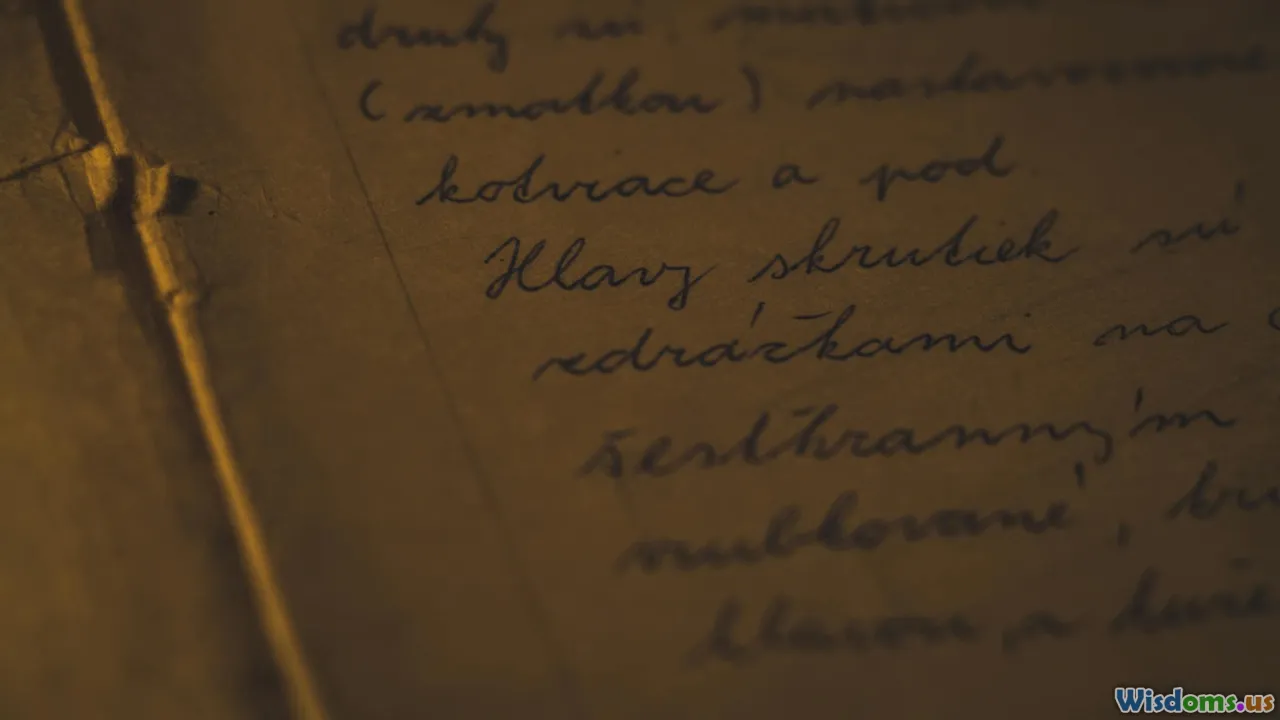 druhy sú
(zmatkou) nastavovacie
kotviace a pod
Hlavy skrutiek sú
zdrážkami na
šesťhranným
vrubkované,
hlavou a
Wisdoms.us